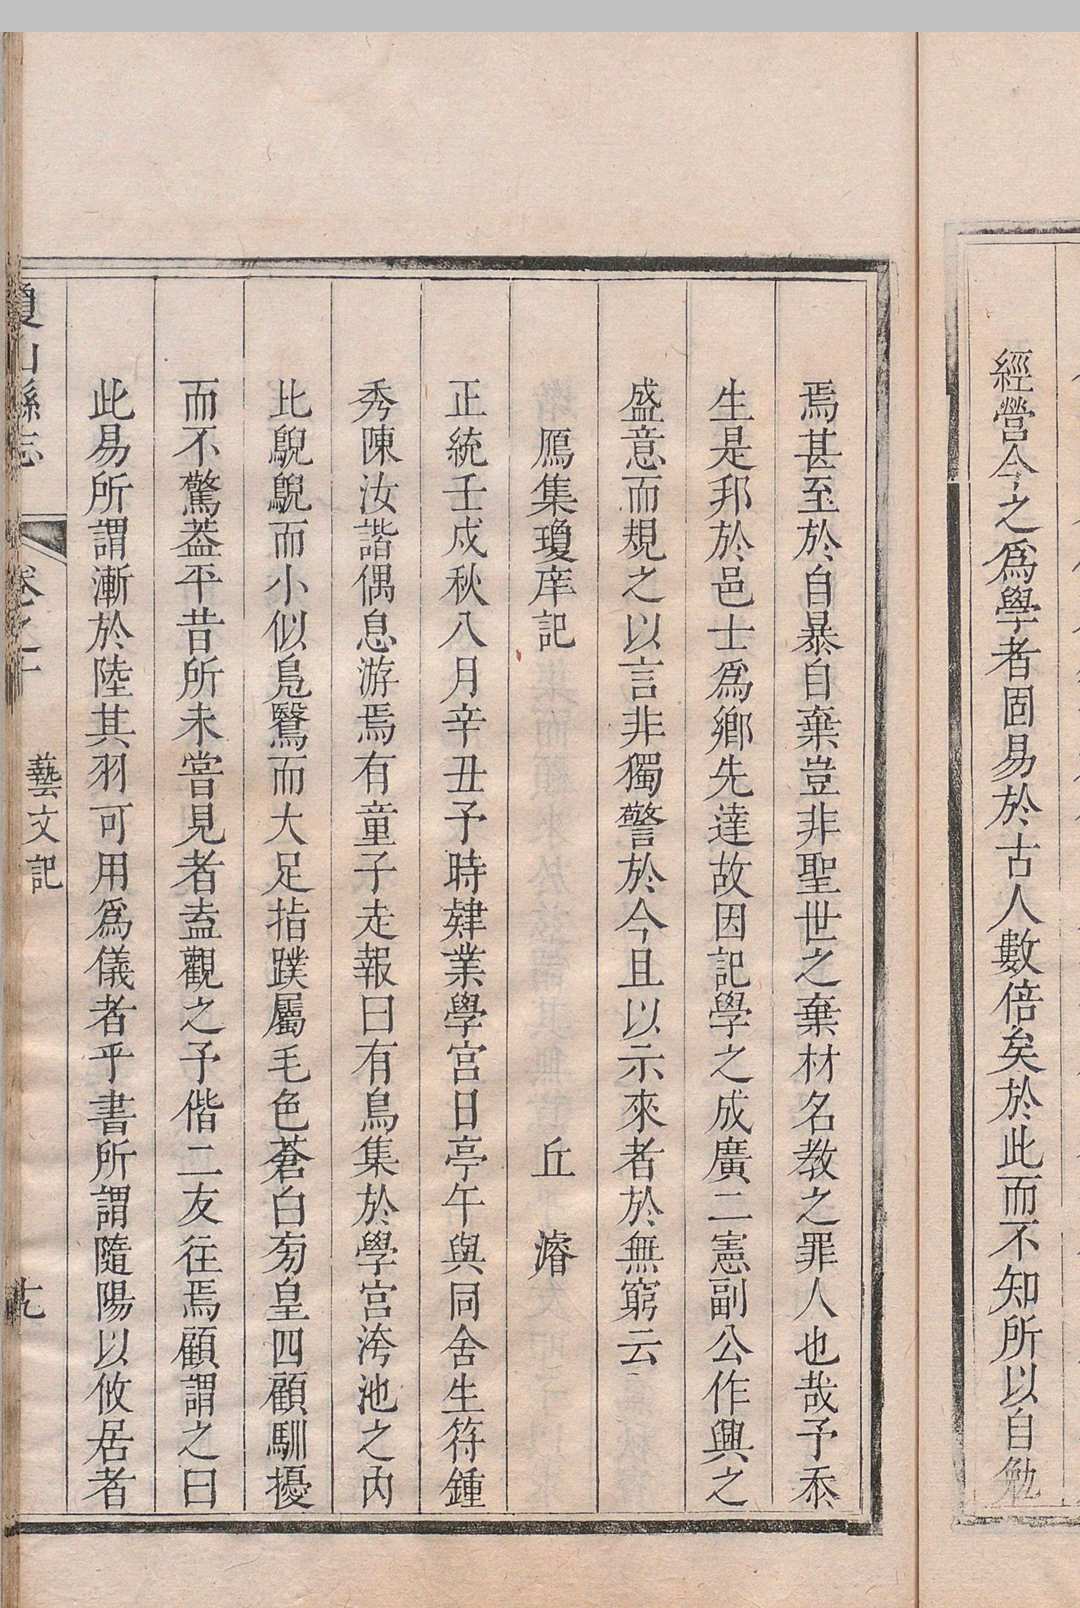 經營今之爲學者固易於古人數倍矣於此而不知所以自勉
焉甚至於自暴自棄豈非聖世之棄材名教之罪人也哉予忝
生是邦於邑士爲鄉先達故因記學之成廣二憲副公作興之
盛意而規之以言非獨警於今且以示來者於無窮云
鴈集瓊庠記 丘 濬
正統壬戍秋八月辛丑予時肄業學宮日亭午與同舍生符鍾
秀陳汝諧偶息游焉有童子走報曰有鳥集於學宮洿池之內
比鶃鶃而小似鳧鷖而大足指蹼屬毛色蒼白匆皇四顧馴擾
而不驚葢平昔所未嘗見者盍觀之予偕二友往焉顧謂之曰
此易所謂漸於陸其羽可用爲儀者乎書所謂隨陽以攸居者
瓊山縣志 卷之十 藝文記